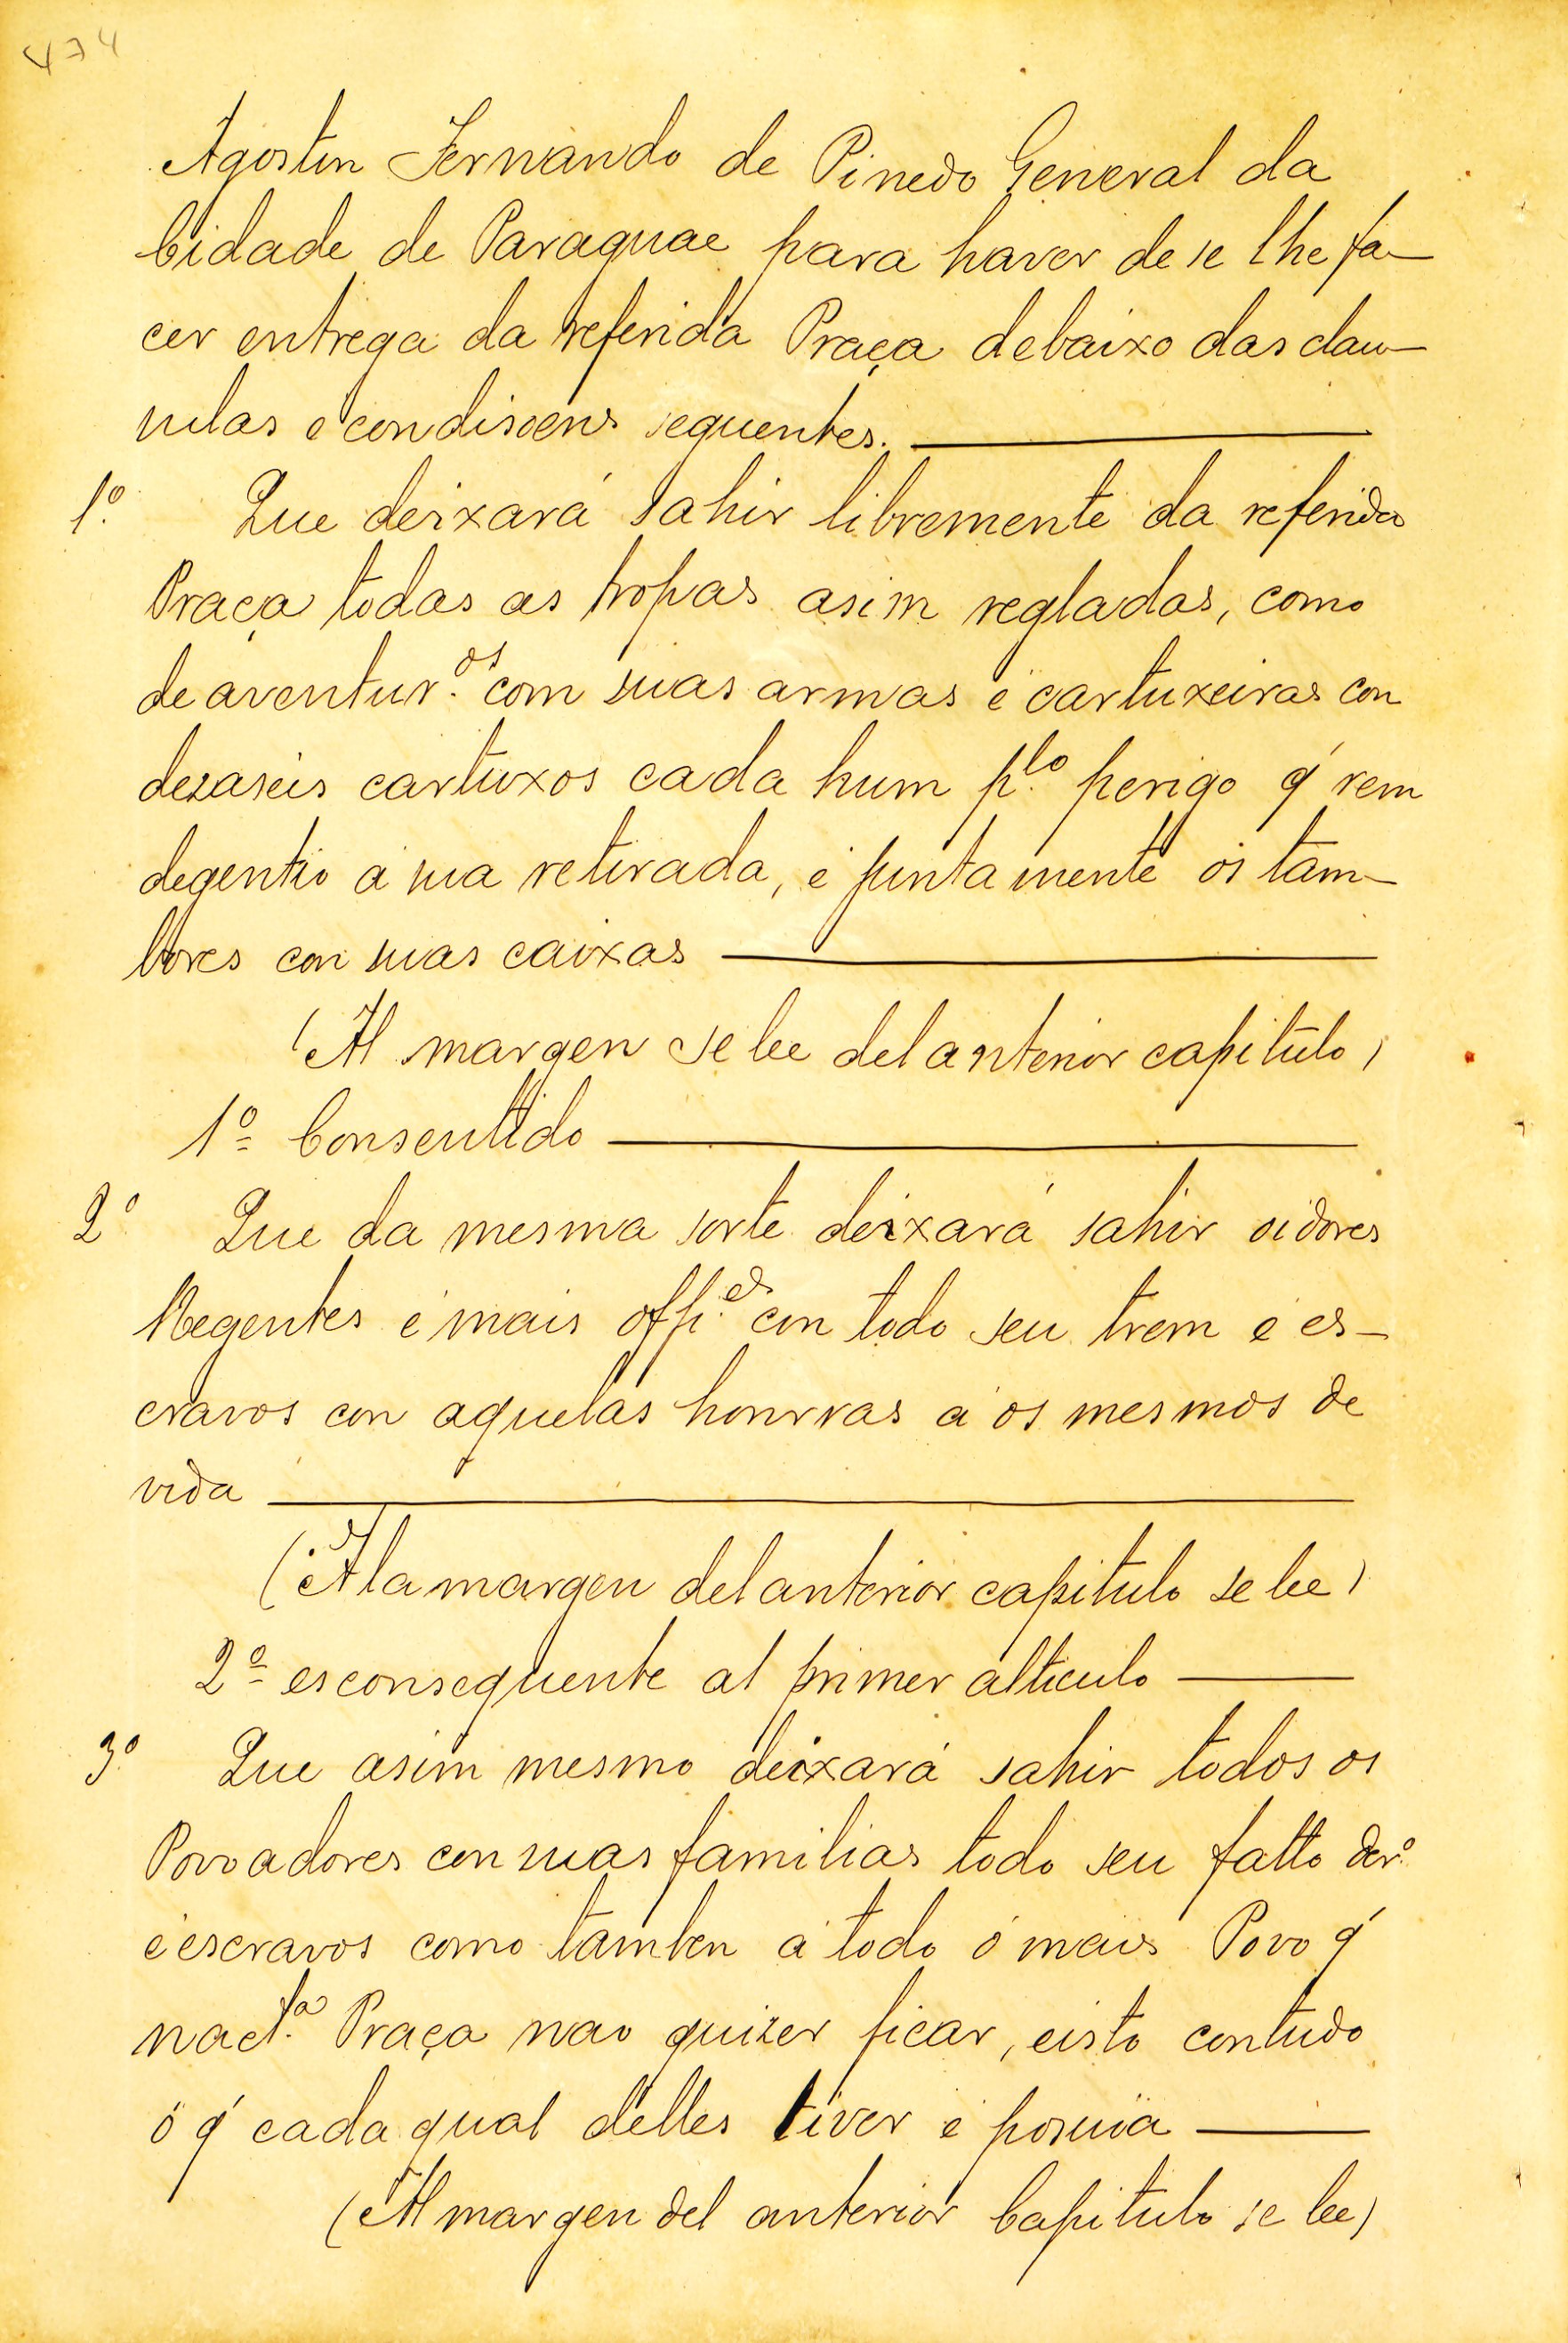 474
Agostin Fernando de Pinedo General da
Cidade de Paraguae para haver de se lhe fa-
cer entrega da referida Praça debaixo das clau-
sulas e condisoens sequentes.
1º Que deixará sahir libremente da referida
Praça todas as tropas asim regladas, como
de aventur.os com suas armas é cartuxeiras con
dezaseis cartuxos cada hum p.lo perigo q' vem
degentio a sua retirada, é juntamente ós tam-
bores con suas caixas
(Al margen se lee del anterior capitulo)
1º Consentido
2º Que da mesma sorte deixará sahir oidores
Regentes é mais offi.es con todo seu trem é es-
cravos con aquelas honrras a os mesmos de
vida
(A la margen del anterior capitulo se lee)
2º es consequente al primer alticulo
3º Que asim mesmo deixará sahir todos os
Povoadores con suas familias todo seu fatto der.º
é escravos como tamben a todo ó mais Povo q'
nad.ta Praça nao quizer ficar, eisto contudo
ó q' cada qual delles tiver é posuia
(Al margen del anterior Capitulo se lee)